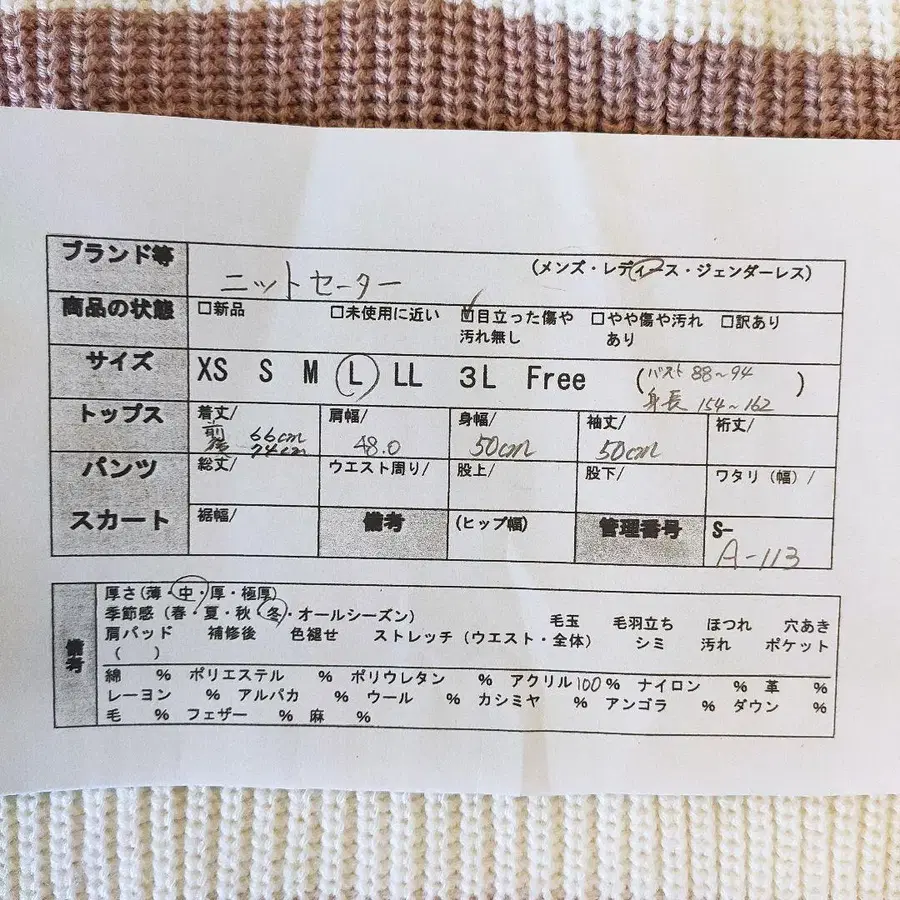 ブランド等 ニットセーター (メンズ・レディース・ジェンダーレス)
商品の状態 □新品 □未使用に近い ☑目立った傷や汚れ無し □やや傷や汚れあり □訳あり
サイズ XS S M L LL 3L Free (バスト 88~94 身長 154~162)
トップス 着丈/ 前 66cm 後 74cm 肩幅/ 48.0 身幅/ 50cm 袖丈/ 50cm 裄丈/
パンツ 総丈/ ウエスト周り/ 股上/ 股下/ ワタリ(幅)/
スカート 裾幅/ 備考 (ヒップ幅) 管理番号 S- A-113
備考
厚さ(薄・中・厚・極厚)
季節感 (春・夏・秋・冬・オールシーズン) 毛玉 毛羽立ち ほつれ 穴あき
肩パッド 補修後 色褪せ ストレッチ(ウエスト・全体) シミ 汚れ ポケット
( )
綿 % ポリエステル % ポリウレタン % アクリル100% ナイロン % 革 %
レーヨン % アルパカ % ウール % カシミヤ % アンゴラ % ダウン %
毛 % フェザー % 麻 %